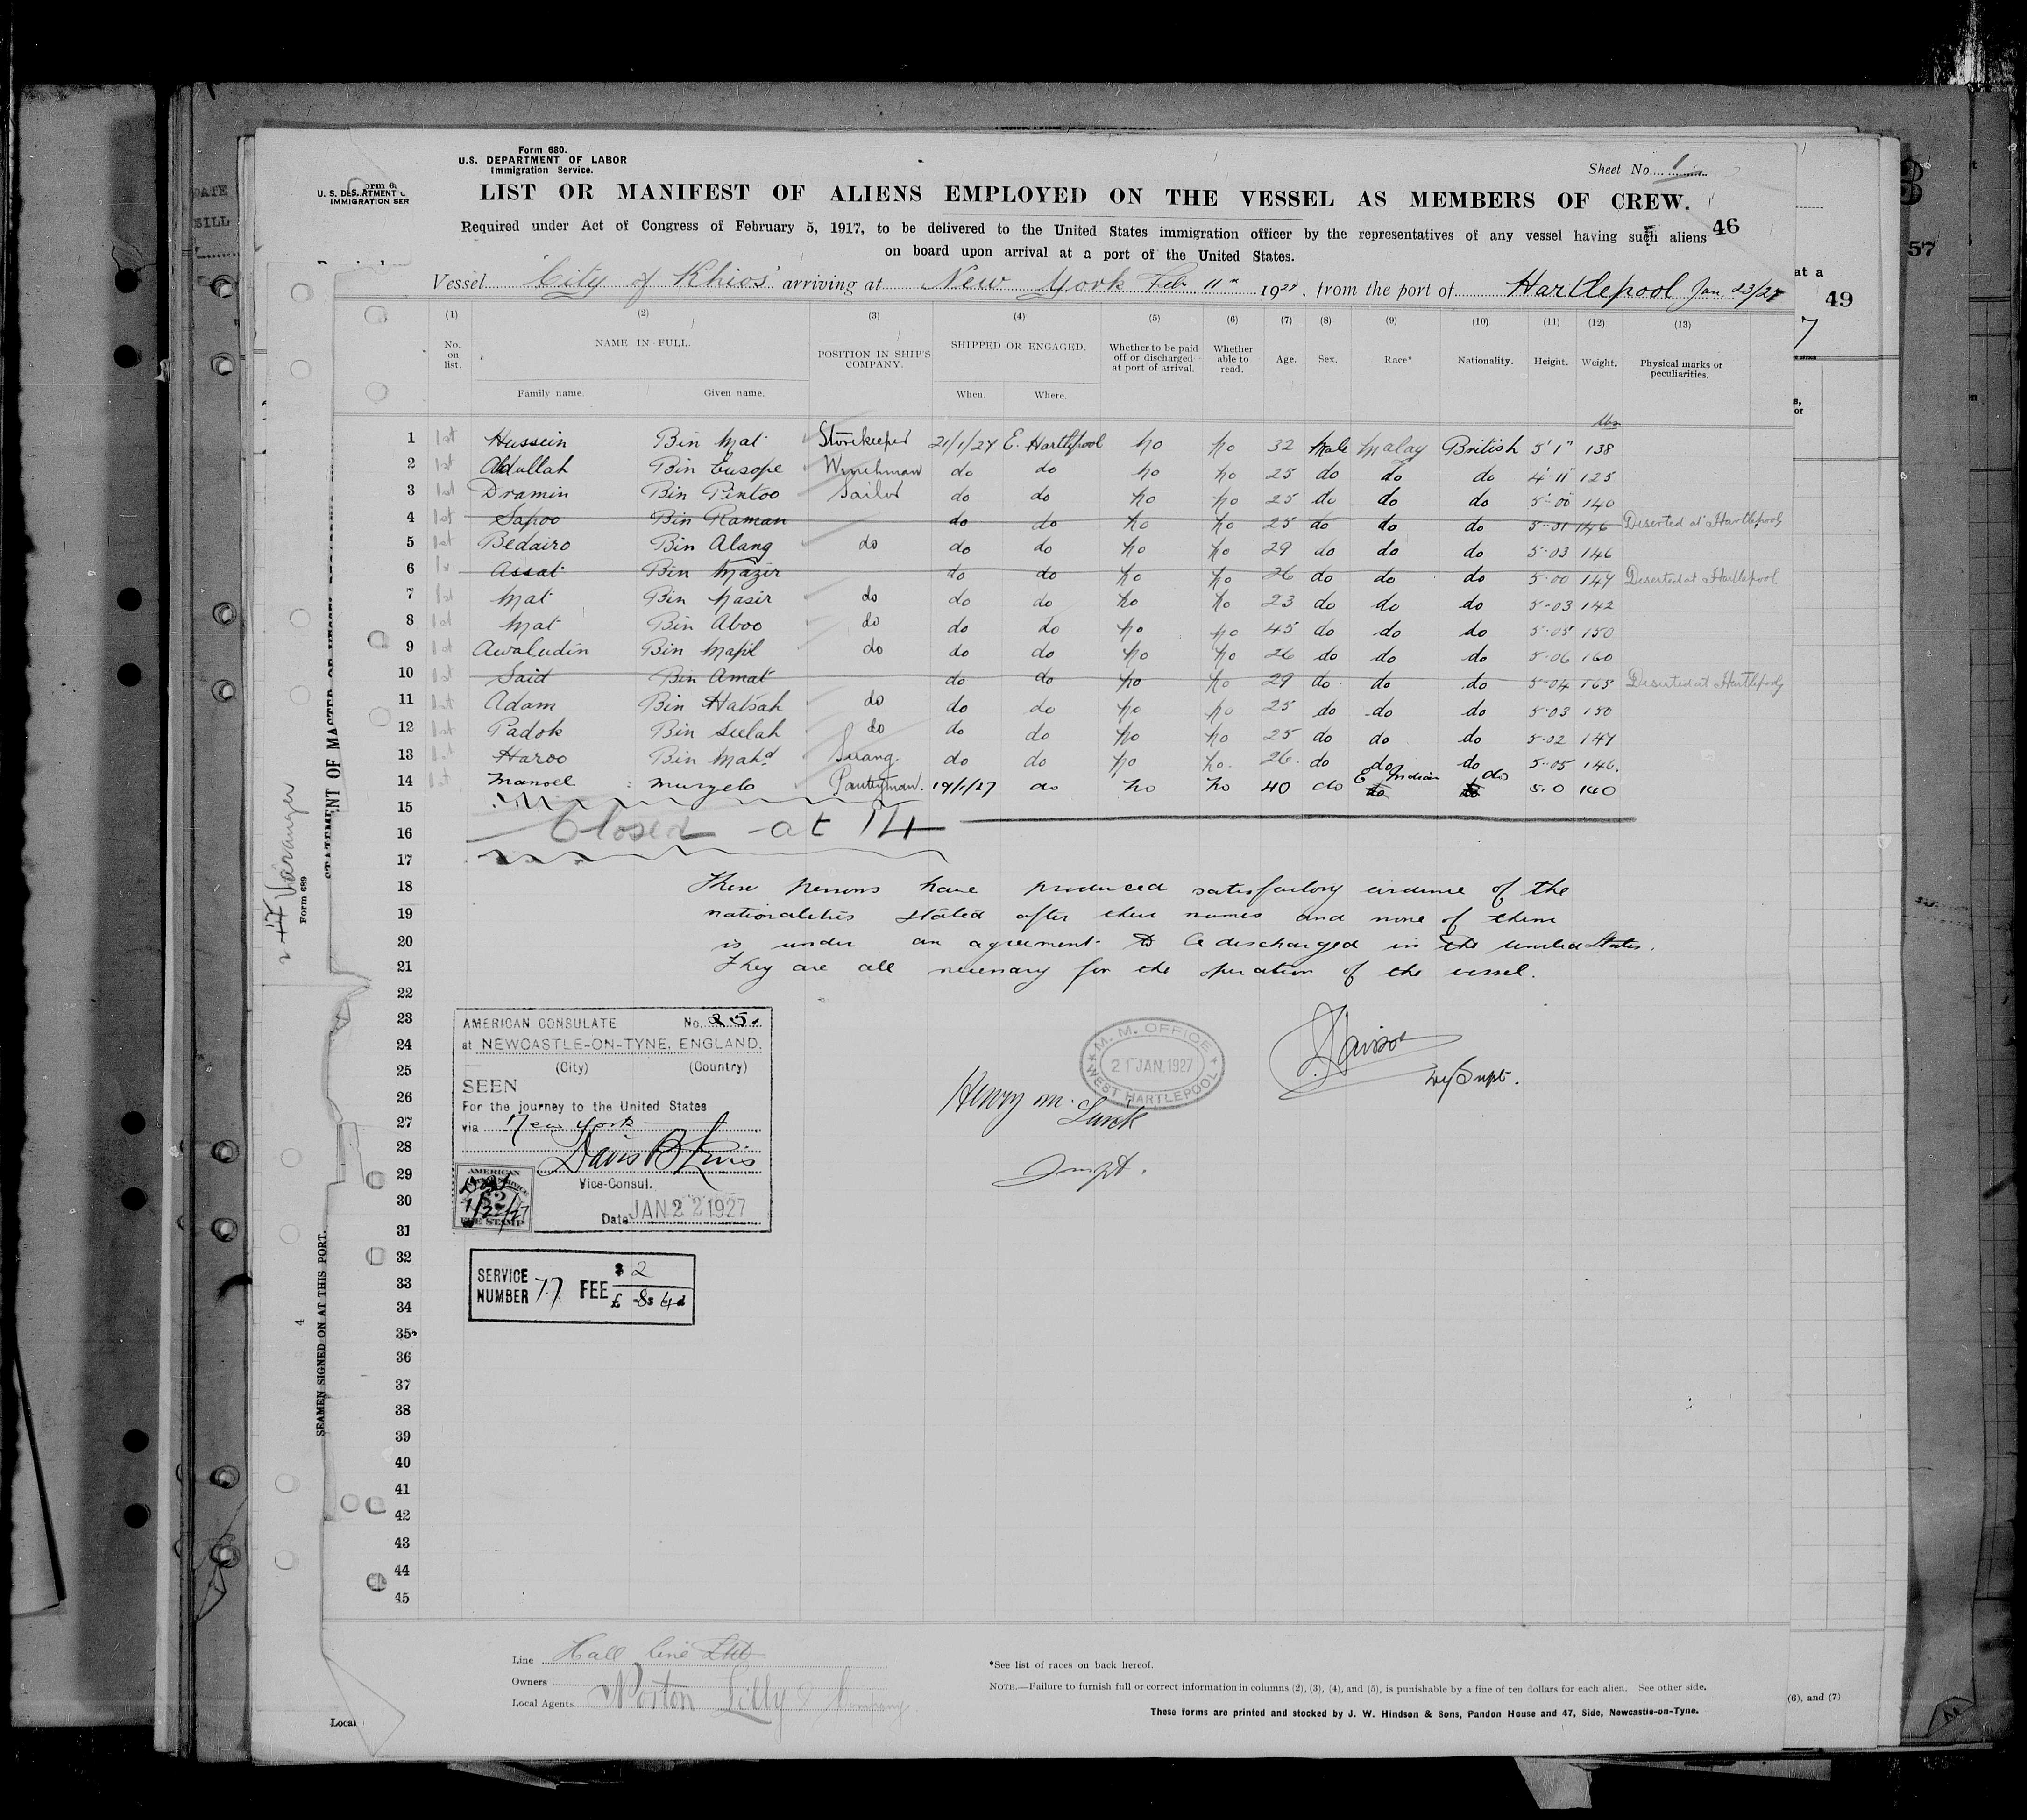 Form 680.
U.S. DEPARTMENT OF LABOR
Immigration Service.
Sheet No. 1
LIST OR MANIFEST OF ALIENS EMPLOYED ON THE VESSEL AS MEMBERS OF CREW.
Required under Act of Congress of February 5, 1917, to be delivered to the United States immigration officer by the representatives of any vessel having such aliens
on board upon arrival at a port of the United States.
46
Vessel "City of Khios" arriving at New York Feb 11th 1927, from the port of Hartlepool Jan. 23/27
49
57
(1) (2) (3) (4) (5) (6) (7) (8) (9) (10) (11) (12) (13)
No. on list. NAME IN FULL. POSITION IN SHIP'S COMPANY. SHIPPED OR ENGAGED. Whether to be paid off or discharged at port of arrival. Whether able to read. Age. Sex. Race* Nationality. Height. Weight. Physical marks or peculiarities.
Family name. Given name. When. Where.
lbs
1 1st Hussein Bin Mat Storekeeper 21/1/27 E. Hartlepool No No 32 Male Malay British 5'1" 138
2 1st Abdullah Bin Eusope Winchman do do No No 25 do do do 4'-11" 125
3 1st Dramin Bin Pintoo Sailor do do No No 25 do do do 5'-00" 140
4 1st Sapoo Bin Raman do do No No 25 do do do 5-01 146 Deserted at Hartlepool
5 1st Bedairo Bin Alang do do do No No 29 do do do 5-03 146
6 1st Assat Bin Mazir do do No No 26 do do do 5-00 147 Deserted at Hartlepool
7 1st Mat Bin Nasir do do do No No 23 do do do 5-03 142
8 1st Mat Bin Aboo do do do No No 45 do do do 5-05 150
9 1st Awaludin Bin Mapil do do do No No 26 do do do 5-06 160
10 1st Said Bin Amat do do No No 29 do do do 5-04 165 Deserted at Hartlepool
11 1st Adam Bin Hatsah do do do No No 25 do do do 5-03 150
12 1st Padok Bin Seelah do do do No No 25 do do do 5-02 147
13 1st Haroo Bin Mahd Serang. do do No No. 26 do do do 5-05 146.
14 1st Manoel Murzelo Pantryman. 19/1/27 do No No 40 do E Indian do 5.0 140
15
16 Closed at 14
17
18 These persons have produced satisfactory evidence of the
19 nationalities stated after their names and none of them
20 is under an agreement to be discharged in the United States.
21 They are all necessary for the operation of the vessel.
22
23
24
25
26
27
28
29
30
31
32
33
34
35
36
37
38
39
40
41
42
43
44
45
AMERICAN CONSULATE No. 25.
at NEWCASTLE-ON-TYNE, ENGLAND.
(City) (Country)
SEEN
For the journey to the United States
via New York
Vice-Consul.
Date JAN 22 1927
AMERICAN
$2
FEE STAMP
1/22/27
M. M. OFFICE
21 JAN. 1927
WEST HARTLEPOOL
Henry M.
Supt.
Dy Supt.
SERVICE NUMBER 77 FEE $ 2
£ 8s 4d
Line Hall Line Ltd
Owners
Local Agents Norton Lilly & Company
*See list of races on back hereof.
NOTE.—Failure to furnish full or correct information in columns (2), (3), (4), and (5), is punishable by a fine of ten dollars for each alien. See other side.
These forms are printed and stocked by J. W. Hindson & Sons, Pandon House and 47, Side, Newcastle-on-Tyne.
(6), and (7)
Local
Form 689
SEAMEN SIGNED ON AT THIS PORT.
STATEMENT OF MASTER